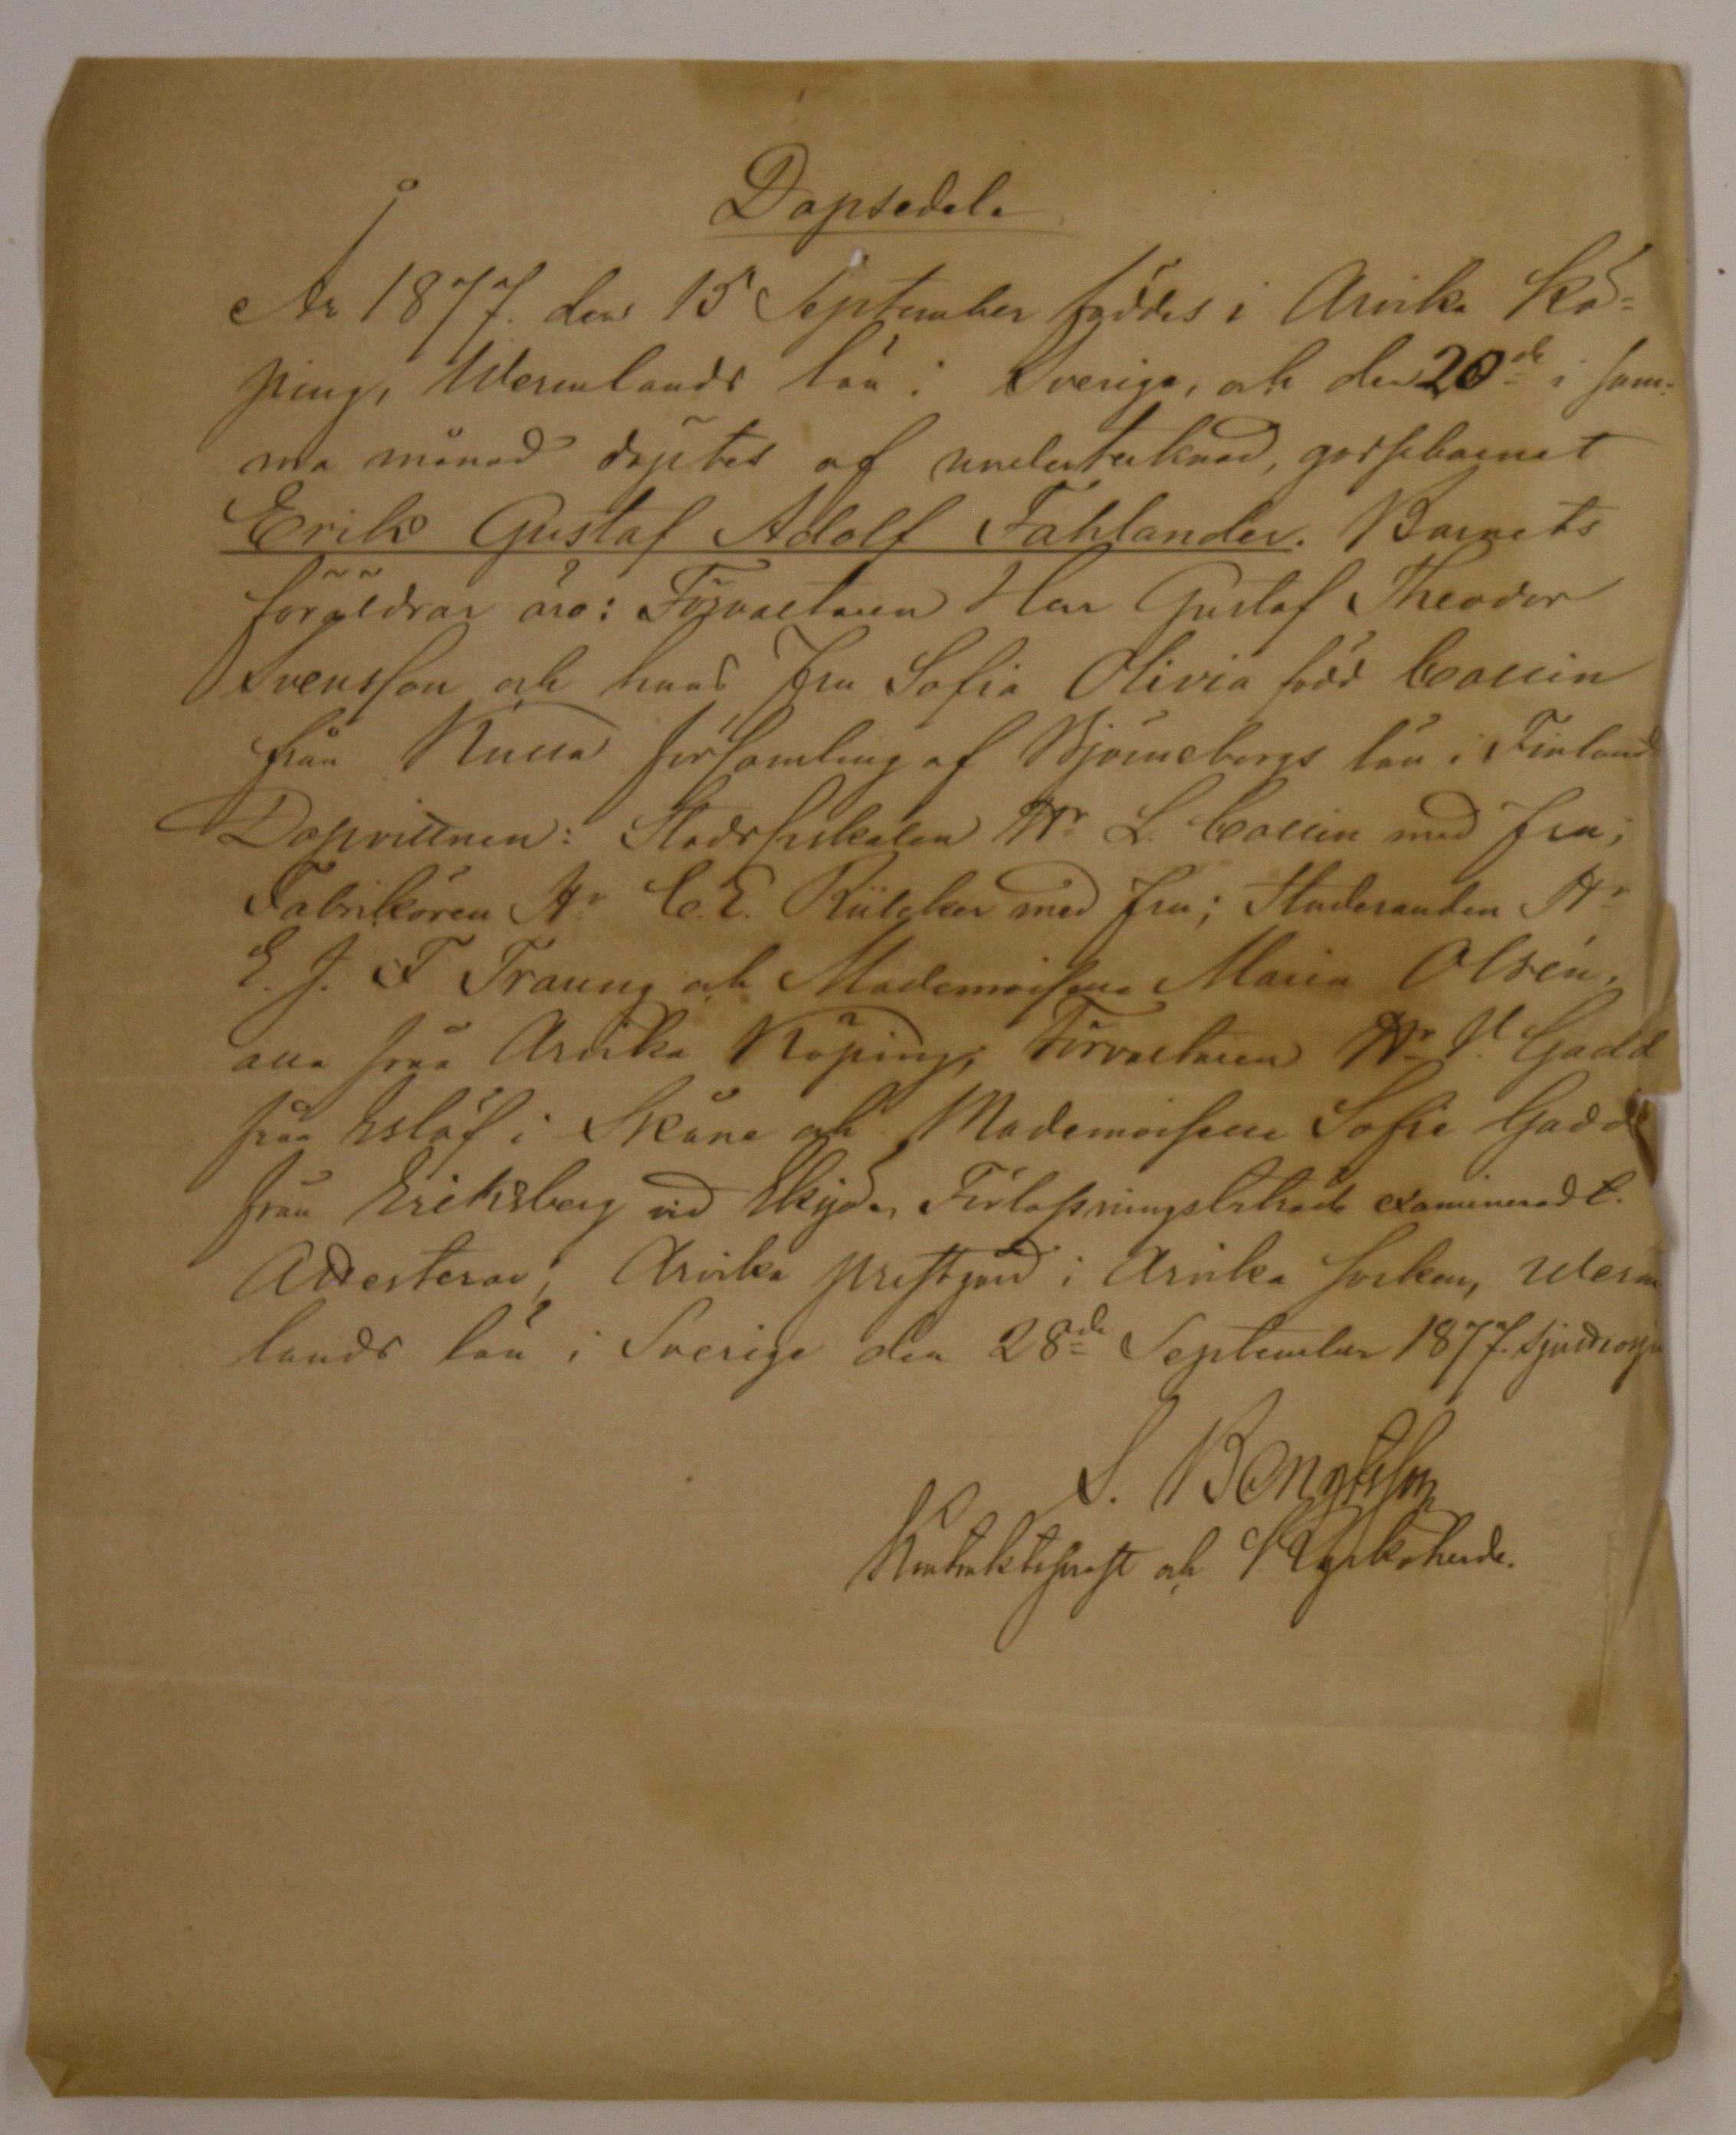 Dopsedel.
År 1877. den 15 September föddes i Arvika Kö=
ping, Wermlands län i Sverige, och den 20de i sam-
ma månad döptes af undertecknad, gossebarnet
Erik Gustaf Adolf Fahlander. Barnets
föräldrar äro: Förvaltaren Herr Gustaf Theodor
Svensson och hans fru Sofia Olivia född Collin
från församling af Björneborgs län i Finland
Dopvittnen: Stadsfiskalen Hr L. Collin med fru;
Fabrikören Hr C. E. med fru; Studeranden Hr
E. J. F Traung och Mademoiselle Maria Olsén,
alla från Arvika Köping, Förvaltaren Hr Gadd
från Eslöf i Skåne och Mademoiselle Sofie Gadd
från Eriksberg vid examinerad
Attesterar, Arvika prestgård i Arvika socken, Werm
lands län i Sverige den 28de September 1877.
S. Bengtsson
Kontraktsprost och Kyrkoherde.